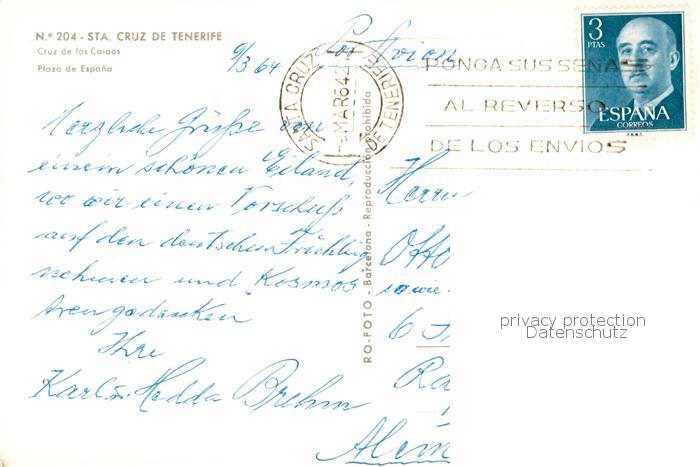 N.º 204 - STA. CRUZ DE TENERIFE
Cruz de los Caidos
Plaza de España
9/3 64
Por Avion
SANTA CRUZ DE TENERIFE
MAR 64
PONGA SUS SEÑAS
AL REVERSO
DE LOS ENVIOS
3
PTAS
ESPAÑA
CORREOS
F.N.M.T.
Herzliche Grüße von
einem schönen Eiland,
wo wir einen Vorschuß
auf den deutschen Frühling
nehmen und "Kosmos"
gedenken
Ihre
Karl u. Hedda Brehm
RO-FOTO - Barcelona - Reproducción prohibida
Herrn
Otto
sowie
6
Alem
privacy protection
Datenschutz